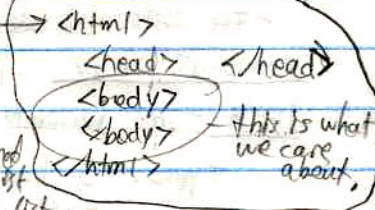 → <html>
<head> </head>
<body>
</body> - this is what
</html> we care
about.